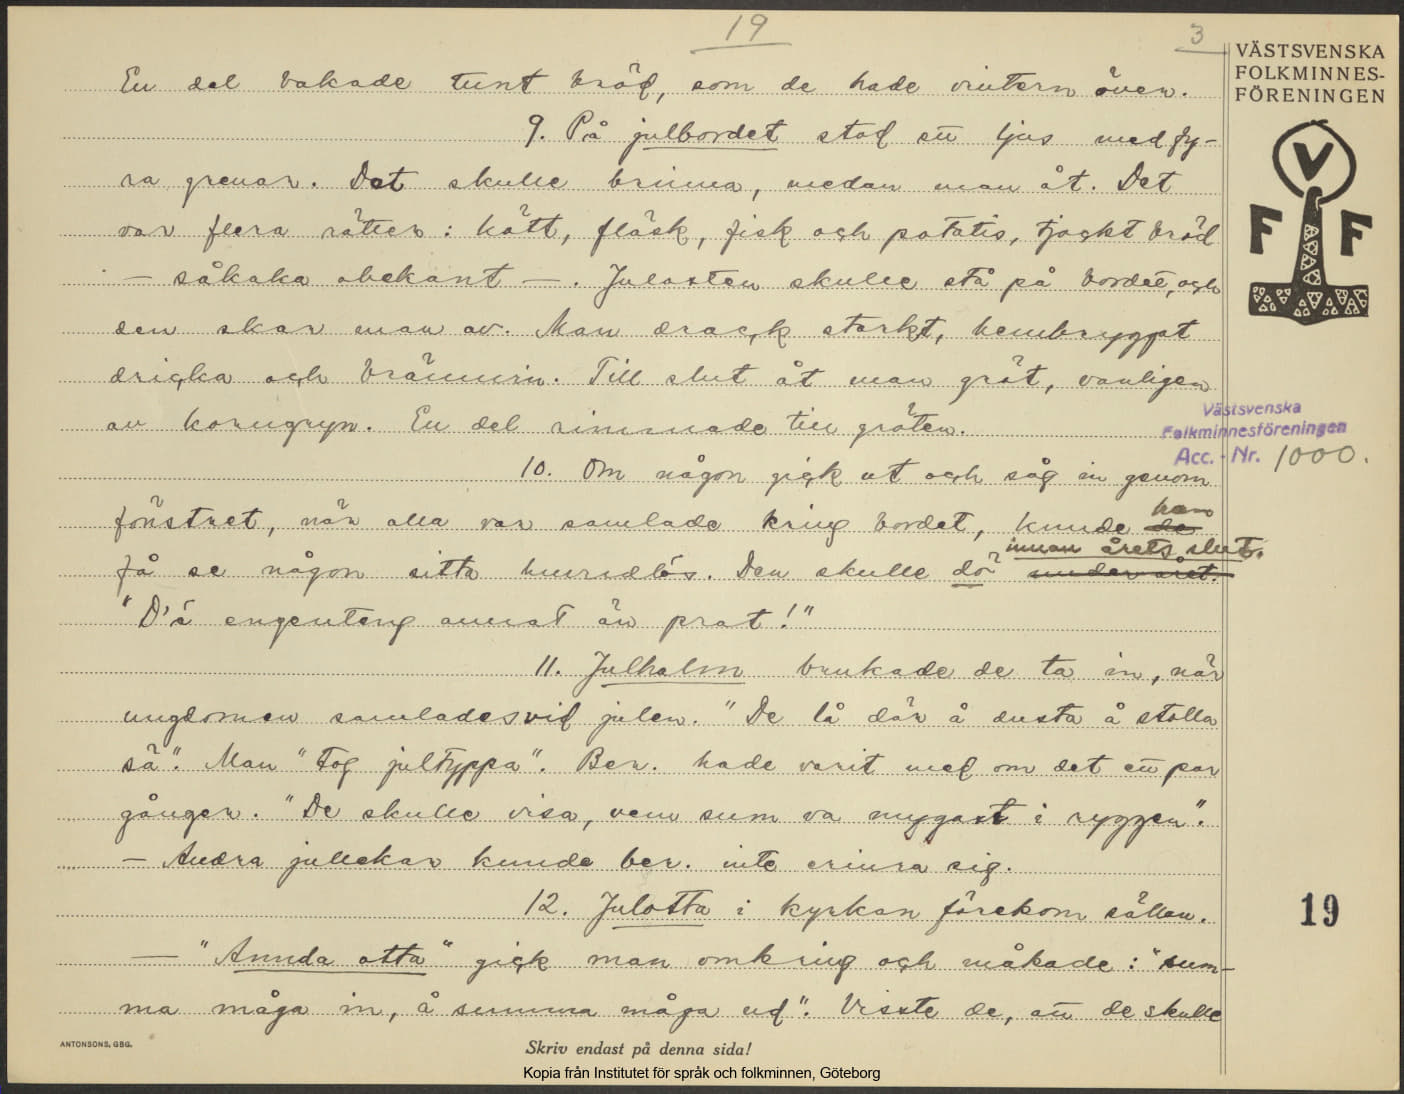 19
3
VÄSTSVENSKA
FOLKMINNES-
FÖRENINGEN
V
F F
En del bakade tunt bröd, som de hade vintern över.
9. På julbordet stod ett ljus med fy-
ra grenar. Det skulle brinna, medan man åt. Det
var flera rätter: kött, fläsk, fisk och potatis, tjockt bröd
— såkaka obekant —. Julosten skulle stå på bordet, och
den skar man av. Man drack starkt, hembryggt
dricka och brännvin. Till slut åt man gröt, vanligen
av korngryn. En del rimmade till gröten.
Västsvenska
Folkminnesföreningen
Acc. - Nr. 1000.
10. Om någon gick ut och såg in genom
fönstret, när alla var samlade kring bordet, kunde de han
få se någon sitta huvudlös. Den skulle dö under året. innan årets slut.
"D'ä engenteng annat än prat!"
11. Julhalm brukade de ta in, när
ungdomen samlades vid julen. "De lå där å dusta å stolla
sä". Man "tog jultyppa". Ber. hade varit med om det ett par
gånger. "De skulle visa, vem sum va mygast i ryggen".
— Andra jullekar kunde ber. inte erinra sig.
12. Julotta i kyrkan förekom sällan.
— "Annda otta" gick man omkring och måkade: "sum-
ma måga in, å summa måga ud". Visste de, att de skulle
19
ANTONSONS, GBG.
Skriv endast på denna sida!
Kopia från Institutet för språk och folkminnen, Göteborg